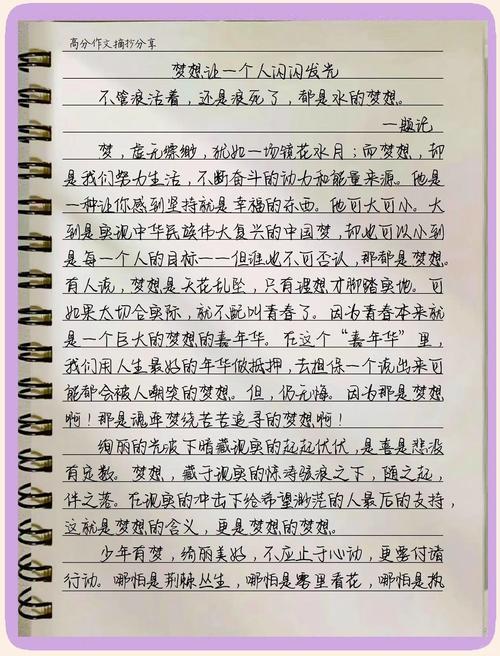 高分作文摘抄分享
梦想让一个人闪闪发光
不管浪活着，还是浪死了，都是水的梦想。
—题记
梦，虚无缥缈，犹如一场镜花水月；而梦想，却
是我们努力生活，不断奋斗的动力和能量来源。他是
一种让你感到坚持就是幸福的东西。他可大可小。大
到是实现中华民族伟大复兴的中国梦，却也可以小到
是每一个人的目标——但谁也不可否认，那都是梦想。
有人说，梦想是天花乱坠，只有理想才脚踏实地。可
如果太切合实际，就不配叫青春了。因为青春本来就
是一个巨大的梦想的嘉年华。在这个“嘉年华”里，
我们用人生最好的年华做抵押，去担保一个说出来可
能都会被人嘲笑的梦想。但，仍无悔。因为那是梦想
啊！那是魂牵梦绕苦苦追寻的梦想啊！
绚丽的光波下暗藏现实的起起伏伏，是喜是悲没
有定数。梦想，藏于现实的惊涛骇浪之下，随之起，
伴之落。在现实的冲击下给希望渺茫的人最后的支持，
这就是梦想的含义，更是梦想的梦想。
少年有梦，绚丽美好，不应止于心动，更要付诸
行动。哪怕是荆棘丛生，哪怕是雾里看花，哪怕是执